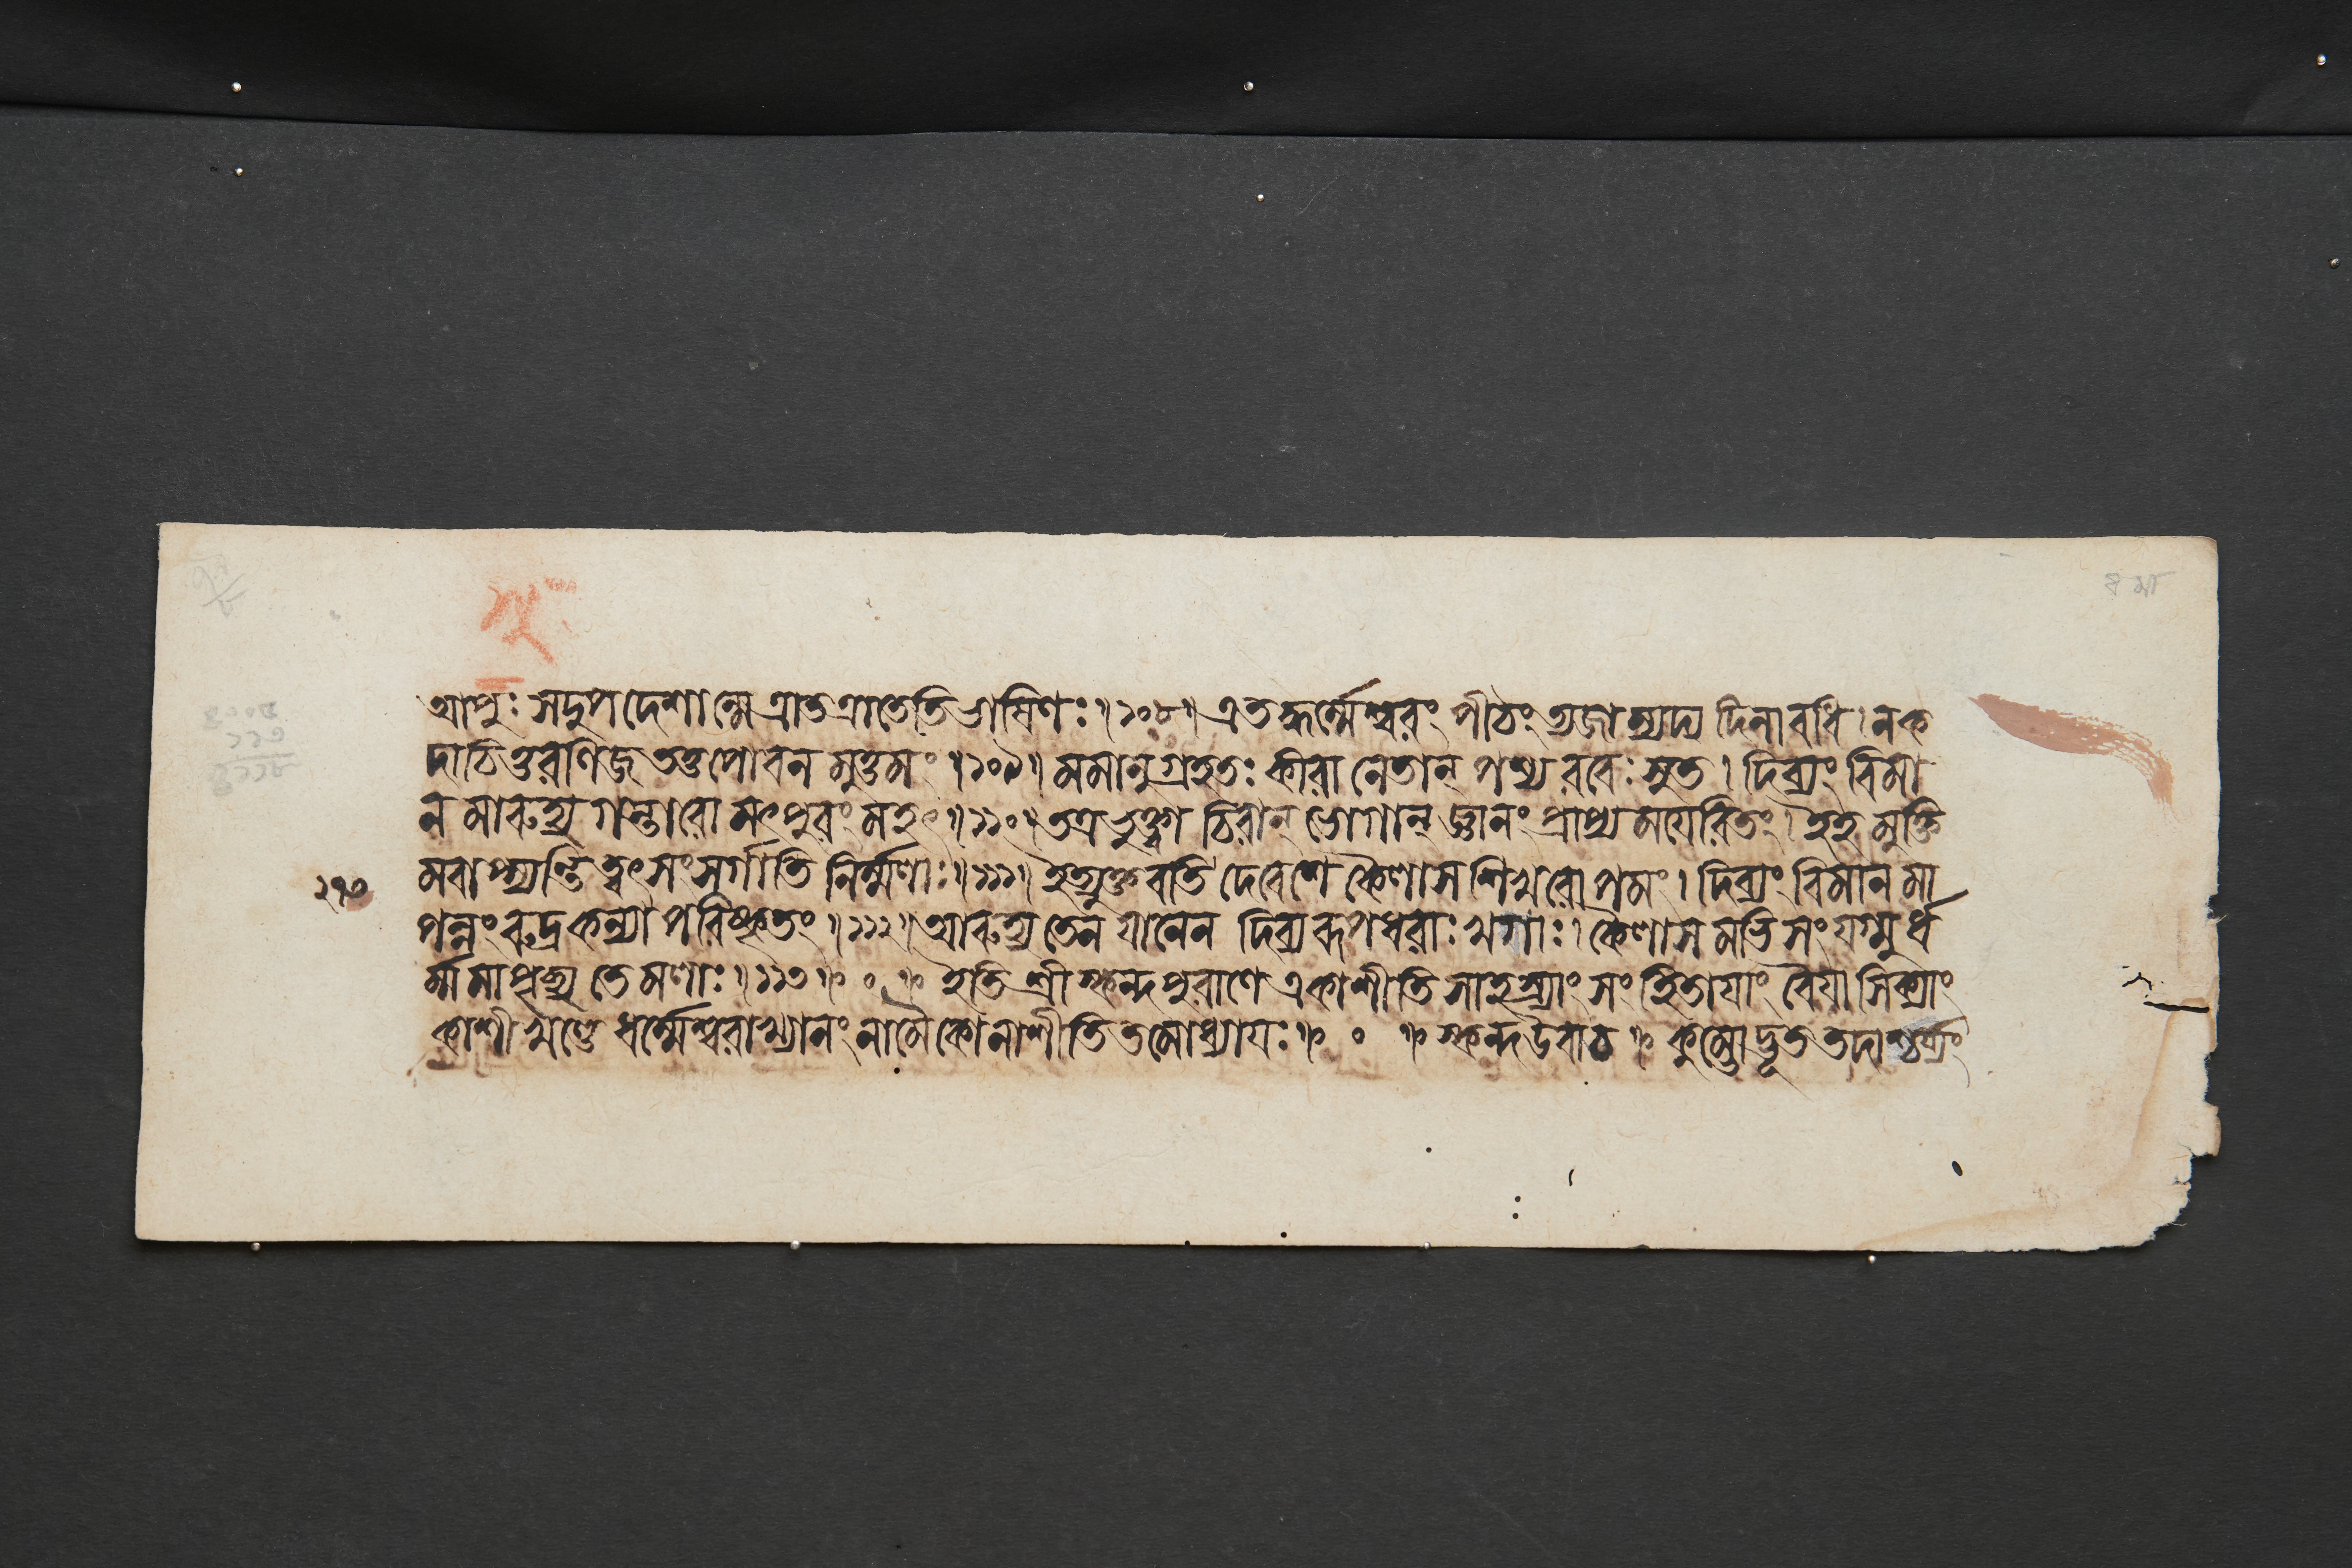 আপুঃ সদুপদেশান্মে ত্রাতত্রাতেতিভাষিণঃ॥১০৮॥এতদ্ধর্ম্মেশ্বরং পীঠং ত্যজাম্যদ্য দিনাবধি।নক
দাচিত্তরণিজ তত্তপোবনমুত্তমং॥১০৯॥মমানুগ্রহতঃ কীরানেতান্ পশ্য রবেঃ সুত। দিব্যং বিমা
নমারুহ্য গন্তারো মৎপুরং মহৎ॥১১০॥তত্র ভুক্ত্বা চিরান্ ভোগান্ জ্ঞানং প্রাপ্য ময়েরিতং। ইহ মুক্তি
মবাপ্স্যন্তি ত্বৎসংসর্গাতিনির্ম্মলাঃ॥১১১॥ইত্যুক্তবতি দেবেশে কৈলাসশিখরোপমং। দিব্যং বিমানমা
২৭৩
পন্নং রুদ্রকন্যাপরিষ্কৃতং॥১১২॥আরুহ্য তেন যানেন দিব্যরূপধরাঃ খগাঃ। কৈলাসমভিসংযগ্মুর্ধ
র্ম্মমাপৃচ্ছ্য তেমলাঃ॥১১৩॥ ০ ॥ ইতি শ্রীস্কন্দপুরাণে একাশীতিসাহস্র্যাং সংহিতায়াং বৈয়াসিক্যাং
কাশীখণ্ডে ধর্ম্মেশ্বরাখ্যানং নামৈকোনাশীতিতমোধ্যায়ঃ॥ ০ ॥ স্কন্দ উবাচ॥ কুম্ভোদ্ভূত তদাশ্চর্য্যং